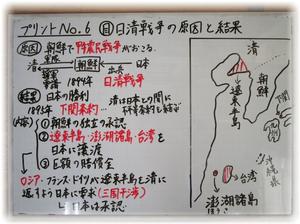 プリントNo.6 目 日清戦争の原因と結果
原因 朝鮮で甲午農民戦争がおこる。
清 朝鮮 日本
出兵
1894年 日清戦争
結果 日本の勝利
1895年 下関条約
清は日本との間に
(内容) ①朝鮮の独立の承認
②遼東半島・澎湖諸島・台湾
を日本に譲渡
③巨額の賠償金
ロシア・フランス・ドイツが遼東半島を清に
返すよう日本に要求(三国干渉)
日本は承認。
清
朝鮮
遼東半島
台湾
澎湖諸島
沖縄県